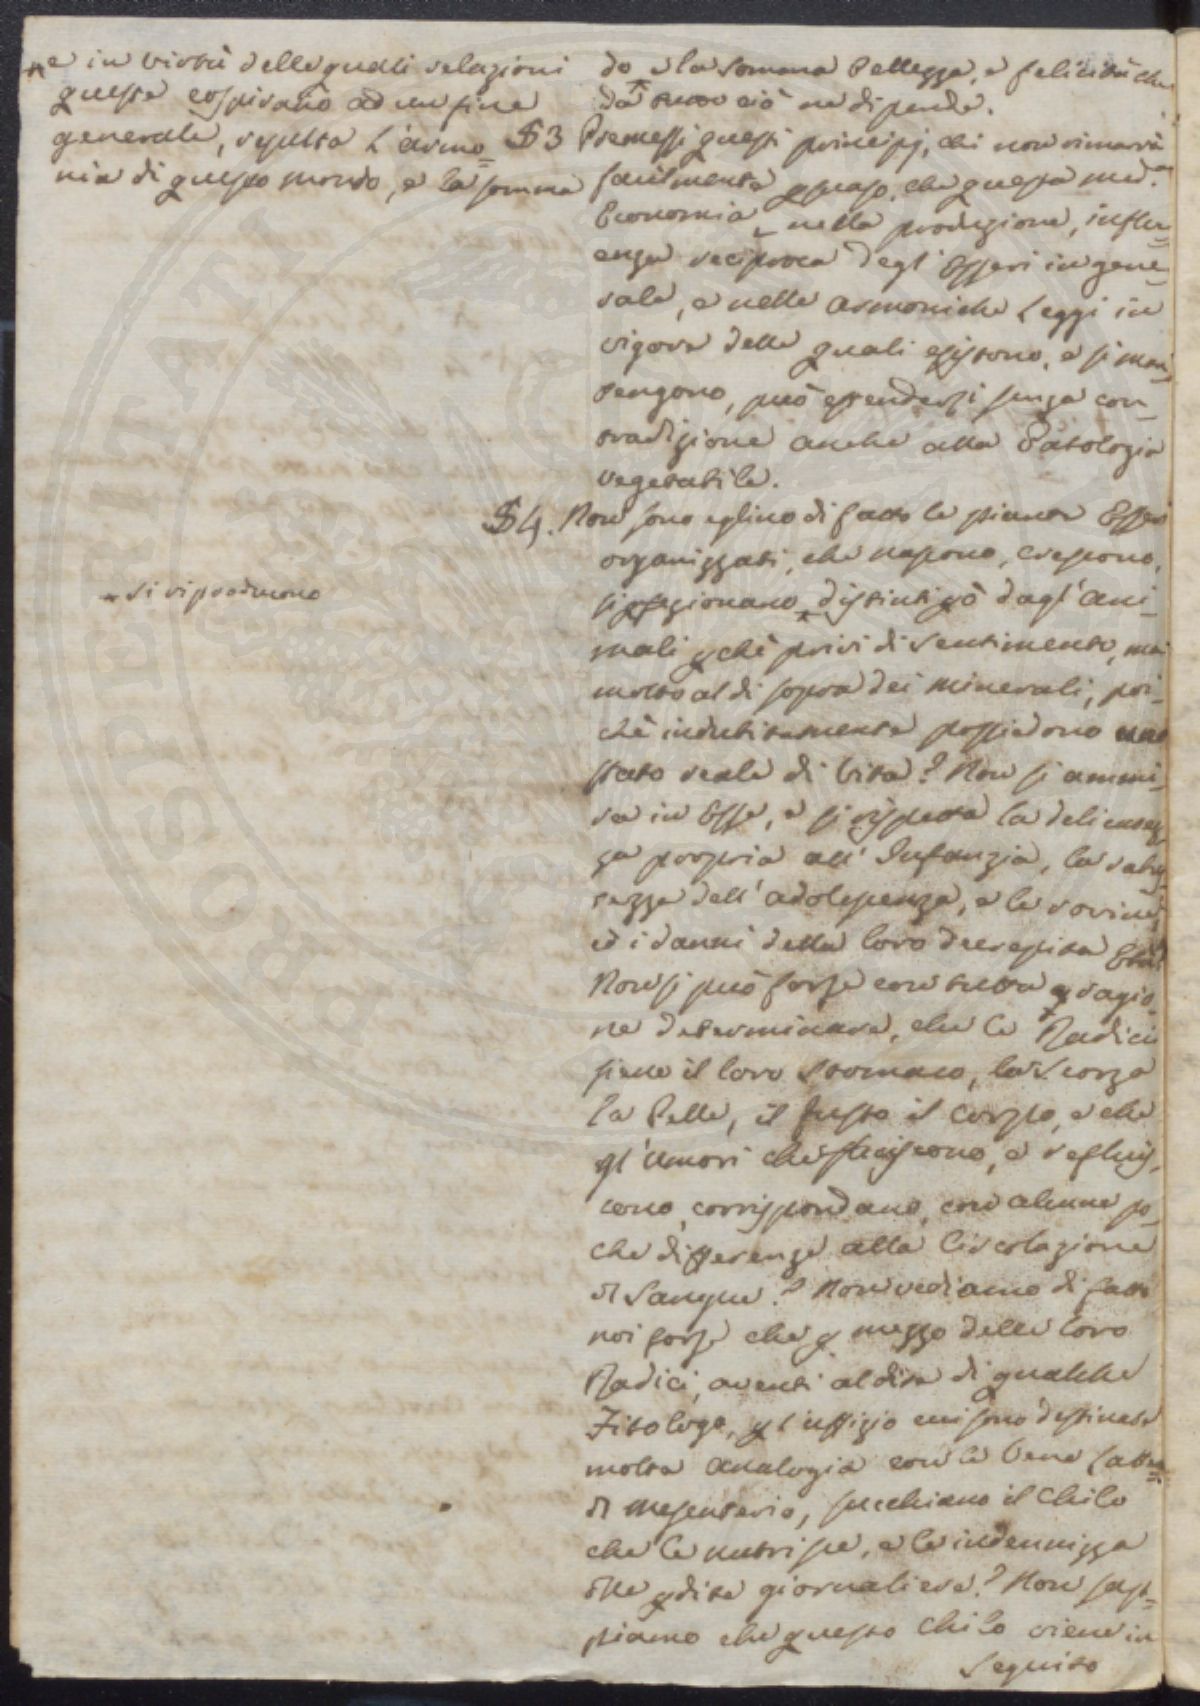 e in virtù delle quali relazioni
queste cospirano ad un fine
generale, risulta l'armo=
nia di questo mondo, e la somma
si riproducono
do e la somma Bellezza, e felicità che
da ciò ne dipende.
§3 Premessi questi principj, chi non rimarrà
facilmente psuaso, che questa med.a
Economia nella produzione, influ=
enza reciproca degl'Esseri in gene=
rale, e nelle armoniche Leggi in
vigore delle quali esistono, e si man=
tengono, può estendersi senza con=
tradizione anche alla Patologia
vegetabile.
§4. Non sono eglino di fatto le piante Esseri
organizzati, che nascono, crescono,
si pfezionano, distinti pò dagl'ani=
mali pchè privi di sentimento, ma
molto al di sopra dei minerali, poi=
chè indubitatamente possiedono uno
stato reale di Vita? Non si ammi=
ra in Esse, e si rispetta la delicatez=
za propria all'Infanzia, la robus=
tezza dell'adolescenza, e le rovine,
ed i danni della loro decrepita Età?
Non si può forse con tutta ragio=
ne determinare, che le Radici
sieno il loro stomaco, la Scorza
la Pelle, il fusto il corpo, e che
gl'umori che fluiscono, e refluis=
cono, corrispondano, con alcune po=
che differenze alla Circolazione
di Sangue? Non vediamo di fatto
noi forse che p mezzo delle loro
Radici, aventi al dire di qualche
Fitologo, p l'uffizio cui sono destinate
molta analogia con le Vene latte=
di Mesenterio, succhiano il Chilo
che le nutrisce, e le indennizza
alle pdite giornaliere? Non sap=
piamo che questo Chilo viene in
seguito